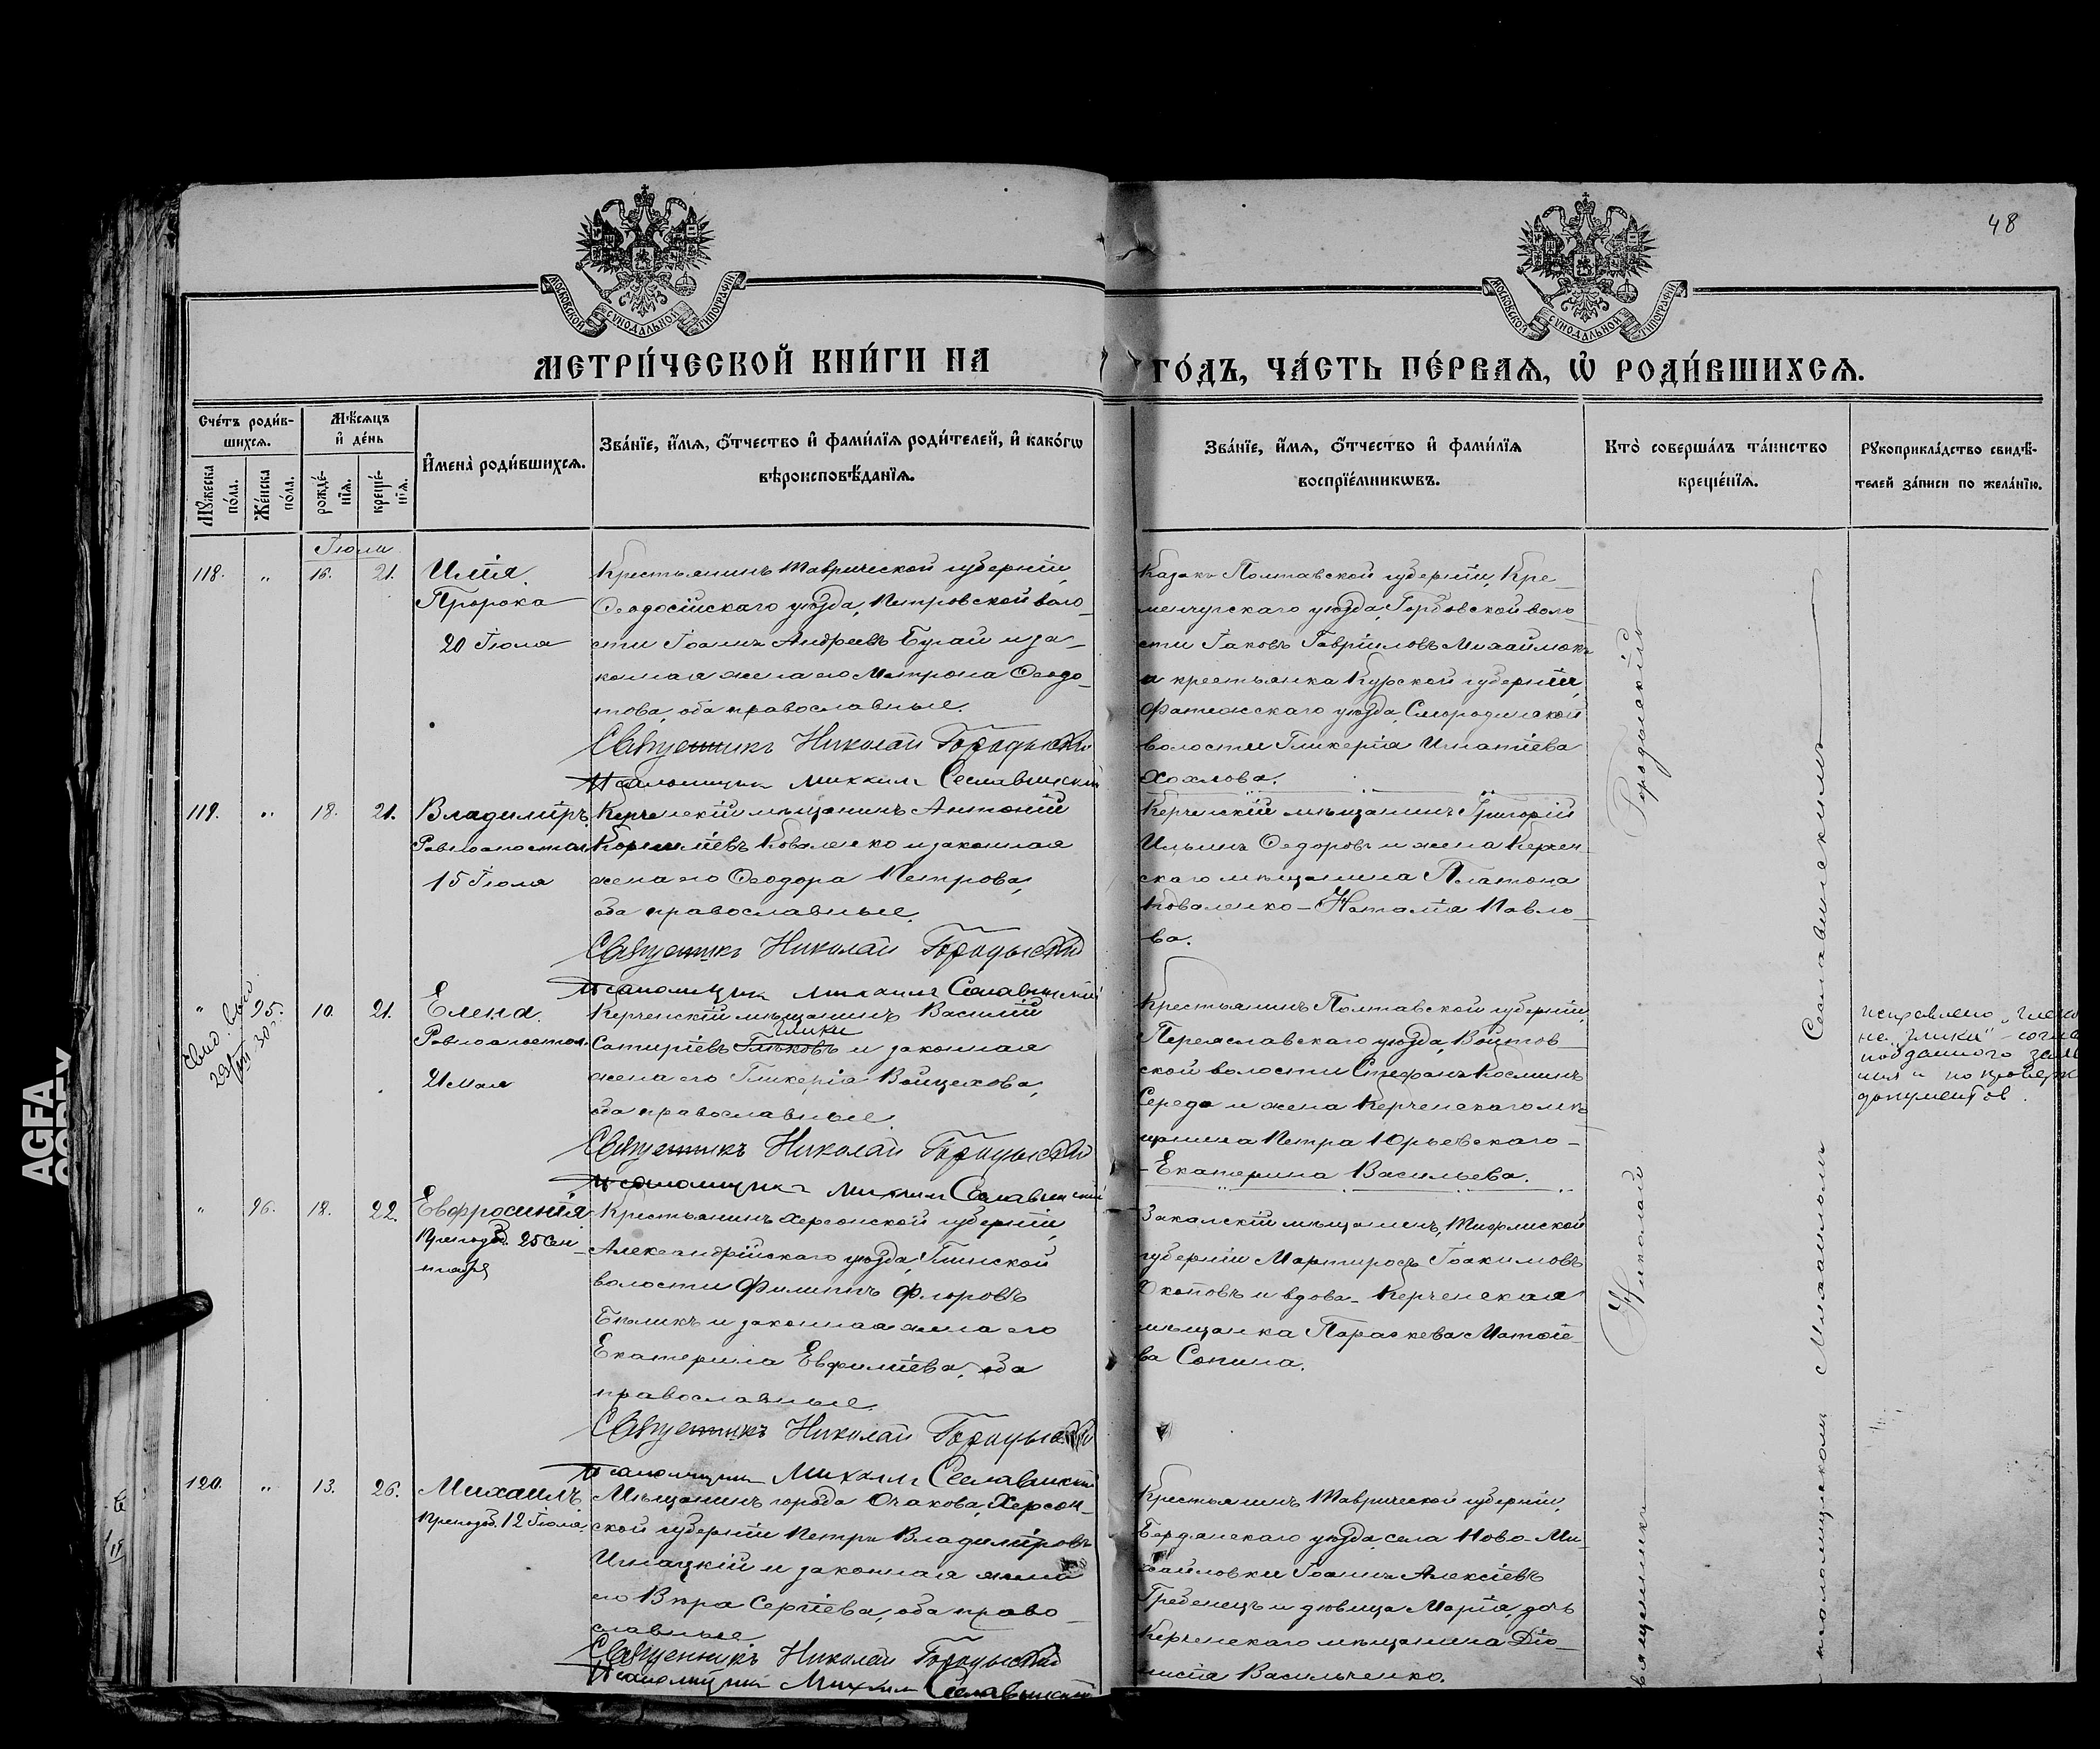 48
МОСКОВСКОЙ СУНОДАЛЬНОЙ ТИПОГРАФІИ
МОСКОВСКОЙ СУНОДАЛЬНОЙ ТИПОГРАФІИ
МЕТРИ́ЧЕСКОЙ КНИ́ГИ НА
ГО́ДЪ, ЧА́СТЬ ПЕ́РВАѦ, Ѡ҆ РОДИ́ВШИХСѦ.
Сче́тъ роди́в-
шихсѧ.
Мѣ́сѧцъ
и҆ де́нь
Мꙋ́жеска
по́ла.
Же́нска
по́ла.
рожде́-
нїѧ.
креще́-
нїѧ.
И҆мена̀ роди́вшихсѧ.
Зва́нїе, и҆́мѧ, ѻ҆́тчество и҆ фами́лїѧ роди́телей, и҆ како́гѡ
вѣроисповѣ́данїѧ.
Зва́нїе, и҆́мѧ, ѻ҆́тчество и҆ фами́лїѧ
воспрїе́мникѡвъ.
Кто̀ соверша́лъ та́инство
креще́нїѧ.
Рꙋкоприкла́дство свидѣ́-
телей за́писи по жела́нїю.
Іюля
118. „ 16. 21. Илія.
Пророка
20 Іюля
Крестьянинъ Таврической губерніи,
Ѳеодосійскаго уѣзда, Петровской воло-
сти Іоаннъ Андреевъ Бугай и за-
конная жена его Матрона Ѳеодо-
това, оба православные.
Священникъ Николай Городыскій
Псаломщикъ Михаилъ Сеславинскій
Казакъ Полтавской губерніи, Кре-
менчугскаго уѣзда, Горбовской воло-
сти Іаковъ Гавріиловъ
и крестьянка Курской губерніи,
Фатежскаго уѣзда, Смородинской
волости Гликерія Игнатіева
Хохлова.
119. „ 18. 21. Владиміръ.
Равноапостол.
15 Іюля
Керченскій мѣщанинъ Антоній
Корниліевъ Коваленко и законная
жена его Ѳеодора Петрова,
оба православные.
Священникъ Николай Городыскій
Псаломщикъ Михаилъ Сеславинскій
Керченскій мѣщанинъ Григорій
Ильинъ Ѳедоровъ и жена Керчен-
скаго мѣщанина Платона
Коваленко - Наталія Павло-
ва.
„ 95. 10. 21. Елена.
Равноапостол.
21 Мая
Керченскій мѣщанинъ Василій
Глики
Сатиріевъ и законная
жена его Гликерія Войцехова,
оба православные.
Священникъ Николай Городыскій
Псаломщикъ Михаилъ Сеславинскій
Крестьянинъ Полтавской губерніи,
Переяславскаго уѣзда, Войтов-
ской волости Стефанъ Косминъ
Середа и жена Керченскаго мѣ-
щанина Петра Юрьевскаго -
- Екатерина Васильева.
исправлено
документов.
„ 96. 18. 22. Евфросинія
Преподоб. 25 Сен-
тября
Крестьянинъ Херсонской губерніи,
Александрійскаго уѣзда, Глинской
волости Филиппъ Флоровъ
Бѣликъ и законная жена его
Екатерина Евфиміева, оба
православные.
Священникъ Николай Городыскій
Псаломщикъ Михаилъ Сеславинскій
мѣщанинъ, Тифлисской
губерніи Мартиросъ Іоакимовъ
и вдова - Керченская
мѣщанка Параскева Матѳіе-
ва Сопина.
120. „ 13. 26. Михаилъ.
Преподоб. 12 Іюля.
Мѣщанинъ города Очакова, Херсон-
ской губерніи Петръ Владиміровъ
Игнацкій и законная жена
его Вѣра Сергіева, оба право-
славные
Священникъ Николай Городыскій
Псаломщикъ Михаилъ Сеславинскій
Крестьянинъ Таврической губерніи,
Бердянскаго уѣзда, села Ново-Ми-
хайловки Іоаннъ Алексіевъ
Гребенецъ и дѣвица Марія, дочь
Керченскаго мѣщанина Діо-
нисія Васильченко.
Священникъ Николай Городыскій
псаломщикомъ Михаиломъ Сеславинскимъ
AGFA